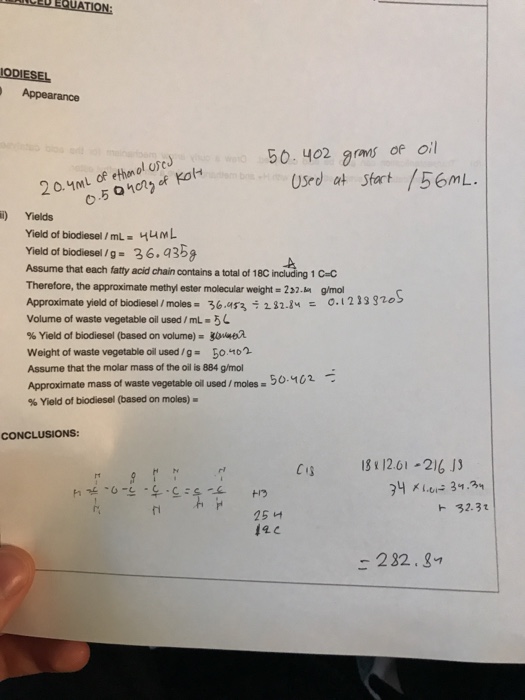 EQUATION:
IODIESEL
Appearance
50.402 grams of oil
Used at start / 56mL.
20.4mL of ethanol used
of KOH
ii) Yields
Yield of biodiesel / mL = 44mL
Yield of biodiesel / g = 36.935g
Assume that each fatty acid chain contains a total of 18C including 1 C=C
Therefore, the approximate methyl ester molecular weight = 282.84 g/mol
Approximate yield of biodiesel / moles = 36.953 ÷ 282.84 = 0.12
Volume of waste vegetable oil used / mL = 56
% Yield of biodiesel (based on volume) =
Weight of waste vegetable oil used / g = 50.402
Assume that the molar mass of the oil is 884 g/mol
Approximate mass of waste vegetable oil used / moles = 50.402 ÷
% Yield of biodiesel (based on moles) =
CONCLUSIONS:
C18
18 x 12.01 = 216.18
34 x 1.01 = 34.34
+ 32.32
H3
25H
12C
= 282.84